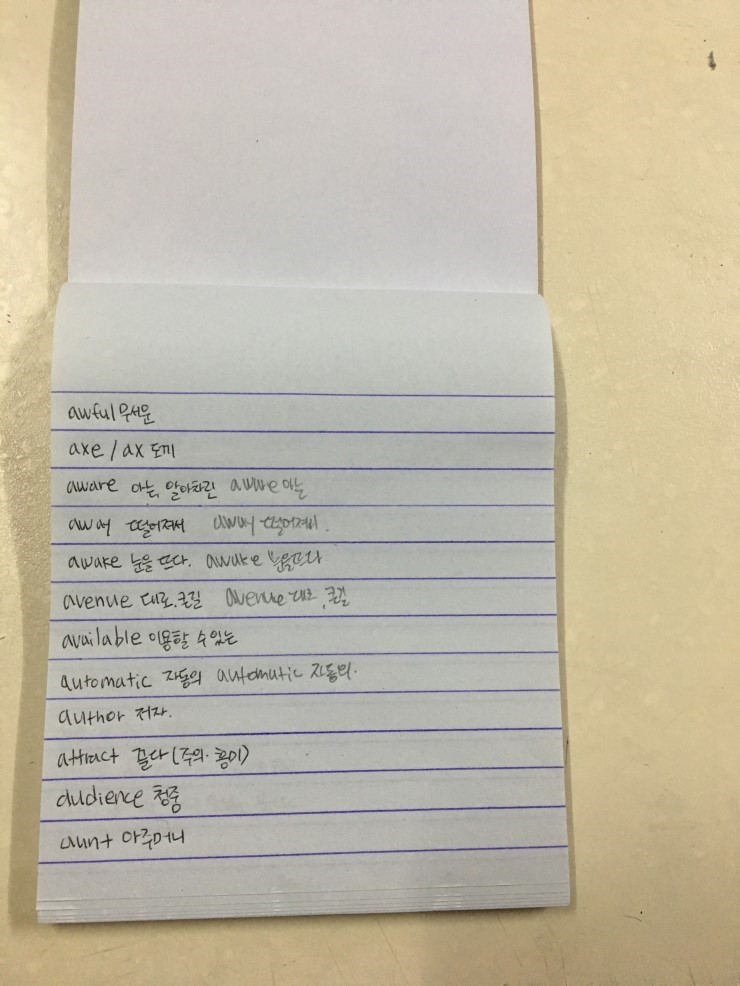 awful 무서운
axe / ax 도끼
aware 아는, 알아차린 aware 아는
away 떨어져서 away 떨어져서.
awake 눈을 뜨다. awake 눈을 뜨다
avenue 대로, 큰길 avenue 대로, 큰길
available 이용할 수 있는
automatic 자동의 automatic 자동의.
author 저자.
attract 끌다 (주의·흥미)
audience 청중
aunt 아주머니